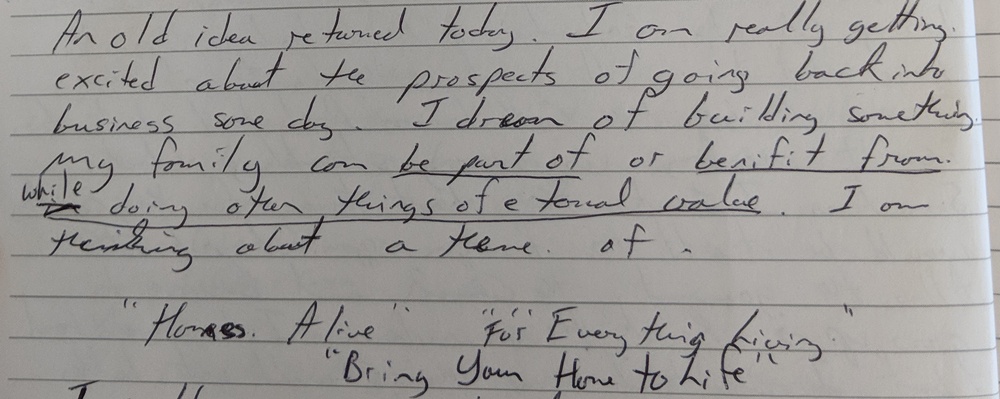 An old idea returned today. I am really getting.
excited about the prospects of going back into
business some day. I dream of building something
my family can be part of or benifit from.
while doing other things of eternal value. I am
thinking about a theme. of .
"Homes. Alive" "For" Everything Living"
"Bring Your Home to Life"